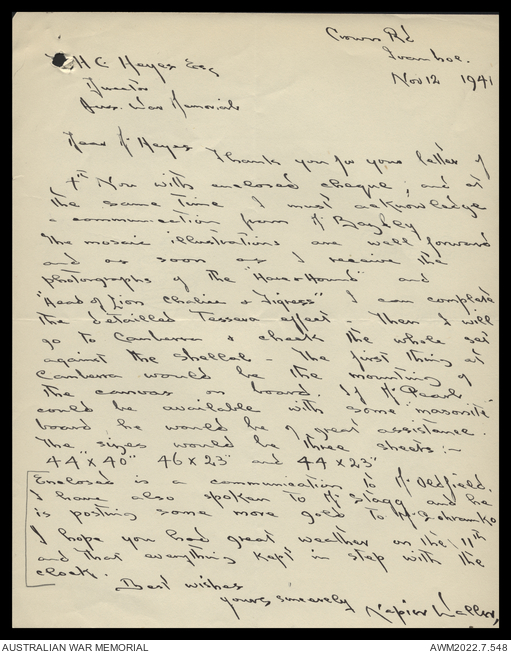 Crown Rd
Ivanhoe.
Nov 12 1941
H C Heyes Esq
Director
Aus. War Memorial
Dear Mr Heyes
Thank you for your letter of
4th Nov with enclosed cheque, and at
the same time I must acknowledge
a communication from Mr Bagley
The mosaic illustrations are well forward
and as soon as I receive the
photographs of the "Hare & Hound" and
"Head of Lion Chalice & Tigress" I can complete
the detailed Tessera effect - Then I will
go to Canberra & check the whole set
against the Shellal - The first thing at
Canberra would be the mounting of
the canvas on board. If Mr Pearl
could be available with some "masonite"
board he would be of great assistance.
The sizes would be three sheets:-
44" x 40" 46 x 23" and 44 x 23"
Enclosed is a communication to Mr Oldfield.
I have also spoken to Mr Stagg and he
is posting some more gold to Mr
I hope you had great weather on the 11th
and that everything kept in step with the
clock.
Best wishes
yours sincerely
Napier Waller,
AUSTRALIAN WAR MEMORIAL
AWM2022.7.548